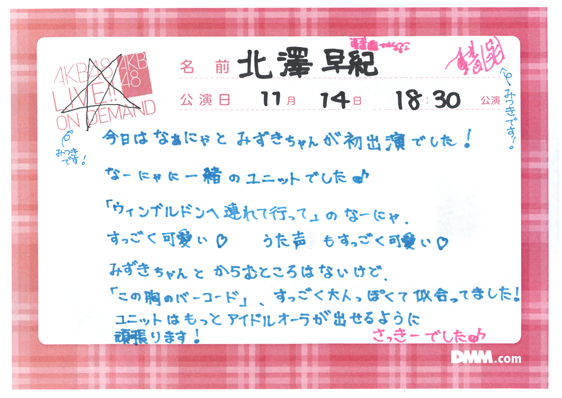 AKB48
AKB48
LIVE!!
ON DEMAND
名前 北澤早紀
公演日 11月 14日 18:30 公演
みつきです!
みつきです!
今日はなぁにゃと みずきちゃんが初出演でした!
なーにゃに一緒のユニットでした♪
「ウィンブルドンへ連れて行って」のなーにゃ.
すっごく可愛い♡ うた声 もすっごく可愛い♡
みずきちゃんと からむところはないけど、
「この胸のバーコード」、すっごく大人っぽくて似合ってました!
ユニットはもっとアイドルオーラが出せるように
頑張ります!
さっきーでした♪
DMM.com